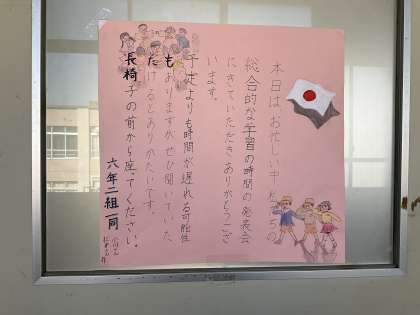 本日はお忙しい中、私たちの
総合的な学習の時間の発表会
にきていただきありがとうござ
います。
予定よりも時間が遅れる可能性
もありますがぜひ聞いていた
だけるとありがたいです。
長椅子の前から座ってください。
六年二組一同